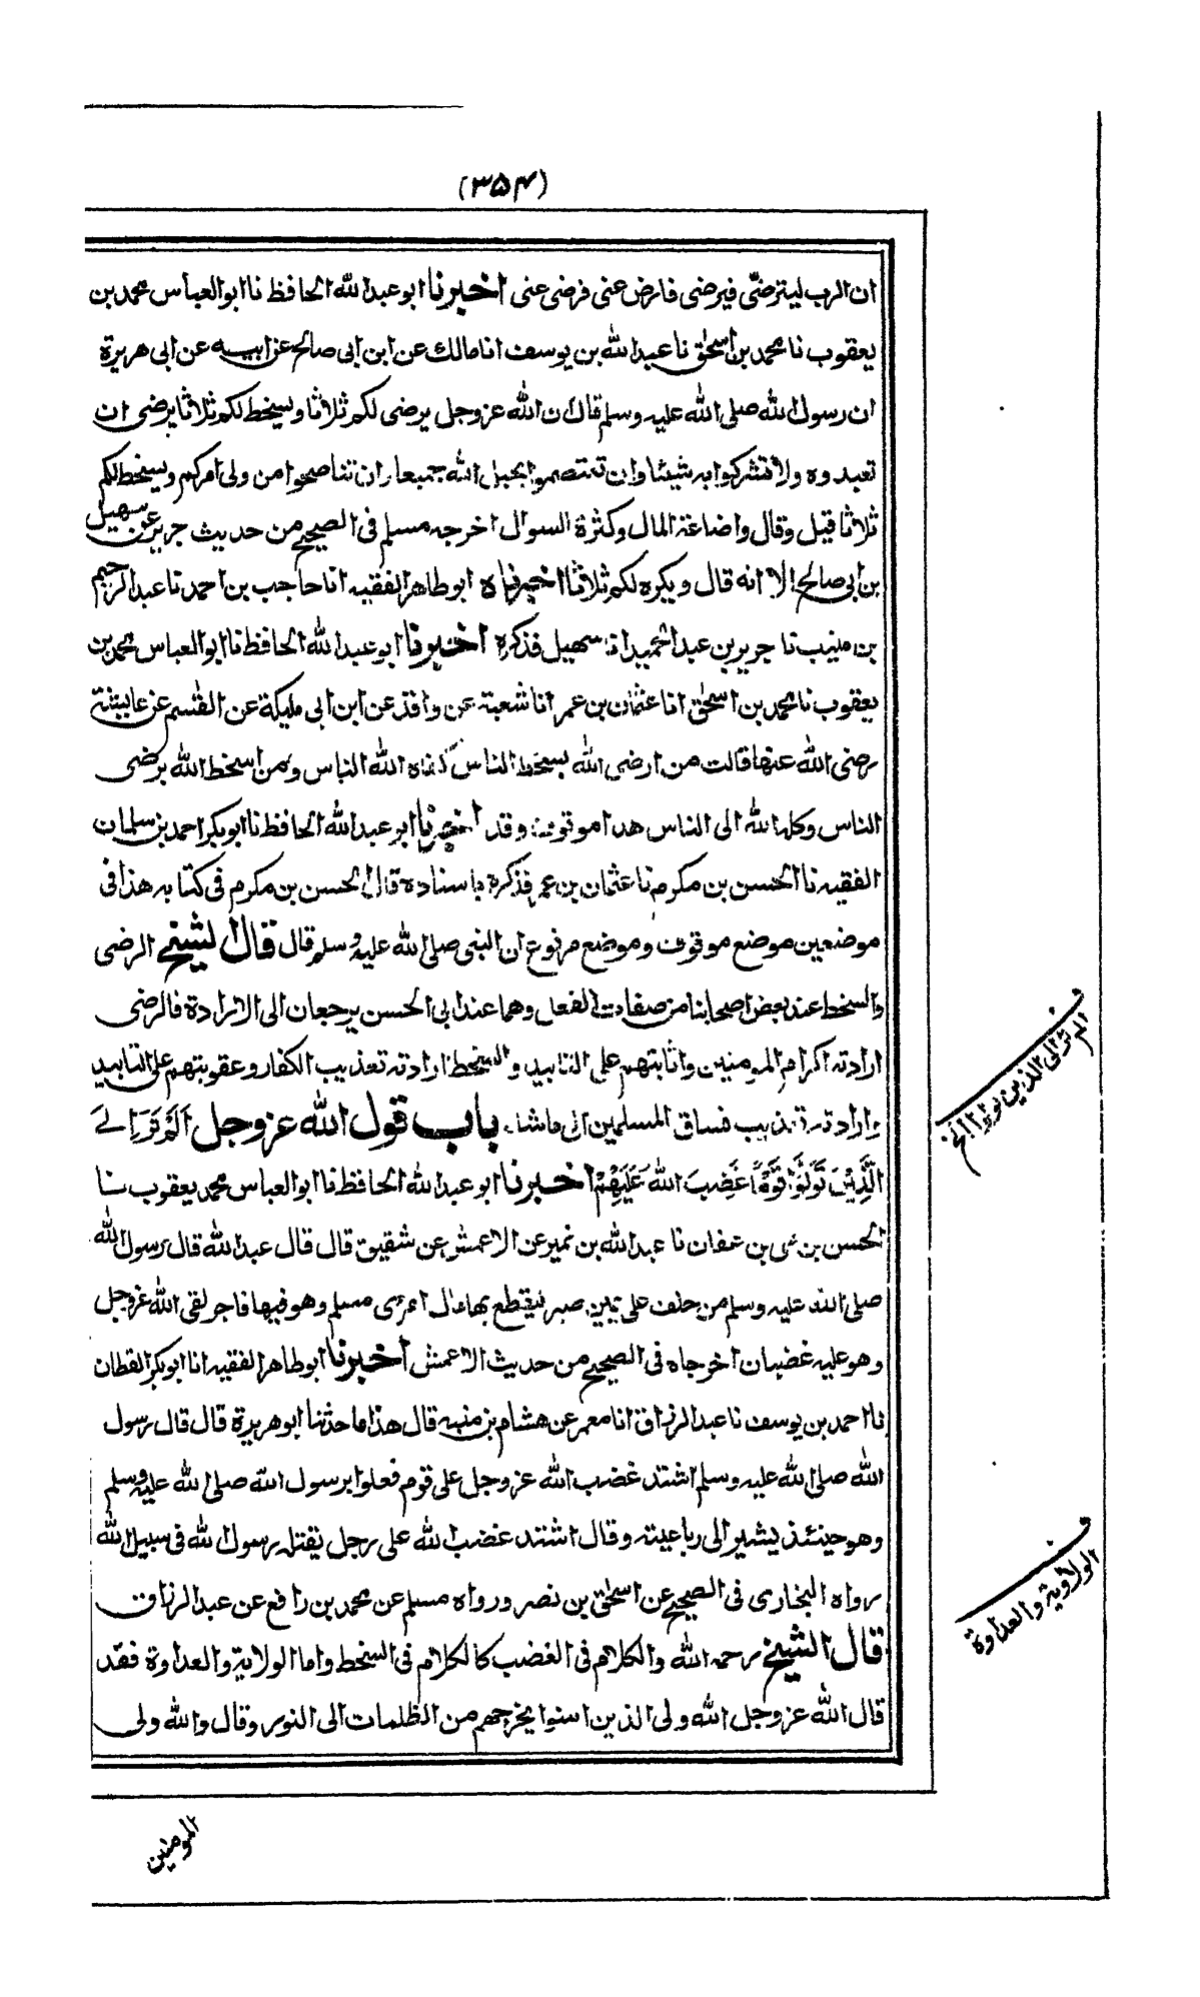 (۳۵۴)
ان الرب ليترضى فيرضى فارض عنى فرضى عنى اخبرنا ابو عبد الله الحافظ نا ابو العباس محمد بن
يعقوب نا محمد بن اسحٰق نا عبد الله بن يوسف انا مالك عن ابن ابى صالح عن ابيه عن ابى هريرة
ان رسول الله صلى الله عليه وسلم قال ان الله عز وجل يرضى لكم ثلاثا ويسخط لكم ثلاثا يرضى ان
تعبدوه ولا تشركوا به شيئا وان تعتصموا بحبل الله جميعا وان تناصحوا من ولى امركم ويسخط لكم
ثلاثا قيل وقال واضاعة المال وكثرة السوال اخرجه مسلم فى الصحيح من حديث جرير عن سهيل
بن ابى صالح الا انه قال ويكره لكم ثلاثا اخبرناه ابو طاهر الفقيه انا حاجب بن احمد نا عبد الرحيم
بن منيب نا جرير بن عبد الحميد انا سهيل فذكره اخبرنا ابو عبد الله الحافظ نا ابو العباس محمد بن
يعقوب نا محمد بن اسحٰق انا عثمان بن عمر انا شعبة عن واقد عن ابن ابى مليكة عن القٰسم عن عايشة
رضى الله عنها قالت من ارضى الله بسخط الناس كفاه الله الناس ومن اسخط الله برضى
الناس وكله الله الى الناس هذا موقوف وقد اخبرنا ابو عبد الله الحافظ نا ابو بكر احمد بن سلمان
الفقيه نا الحسن بن مكرم نا عثمان بن عمر فذكره باسناده قال الحسن بن مكرم فى كتابه هذا فى
موضعين موضع موقوف وموضع مرفوع ان النبى صلى الله عليه وسلم قال قال الشيخ الرضى
والسخط عند بعض اصحابنا من صفات الفعل وهما عند ابى الحسن يرجعان الى الارادة فالرضى
ارادته اكرام المومنين واثابتهم على التابيد والسخط ارادته تعذيب الكفار وعقوبتهم على التابيد
وارادته تعذيب فساق المسلمين الى ماشاء باب قول الله عز وجل اَلَمْ تَرَ اِلَى
الَّذِيْنَ تَوَلَّوْا قَوْمًا غَضِبَ اللهُ عَلَيْهِمْ اخبرنا ابو عبد الله الحافظ نا ابو العباس محمد يعقوب نا
الحسن بن على بن عفان نا عبد الله بن نمير عن الاعمش عن شقيق قال قال عبد الله قال رسول الله
صلى الله عليه وسلم من حلف على يمين صبر ليقتطع بها مال امرى مسلم وهو فيها فاجر لقى الله عز وجل
وهو عليه غضبان اخرجاه فى الصحيح من حديث الاعمش اخبرنا ابو طاهر الفقيه انا ابو بكر القطان
نا احمد بن يوسف نا عبد الرزاق انا معمر عن هشام بن منبه قال هذا ما حدثنا ابو هريرة قال قال رسول
الله صلى الله عليه وسلم اشتد غضب الله عز وجل على قوم فعلوا برسول الله صلى الله عليه وسلم
وهو حينئذ يشير الى رباعيته وقال اشتد غضب الله على رجل يقتله رسول الله فى سبيل الله
رواه البخارى فى الصحيح عن اسحٰق بن نصر ورواه مسلم عن محمد بن رافع عن عبد الرزاق
قال الشيخ رحمه الله والكلام فى الغضب كالكلام فى السخط واما الولاية والعداوة فقد
قال الله عز وجل الله ولى الذين امنوا يخرجهم من الظلمات الى النور وقال والله ولى
المومنين
ف
الم تر الى الذين تولوا الخ
ف
الولاوية والعداوة